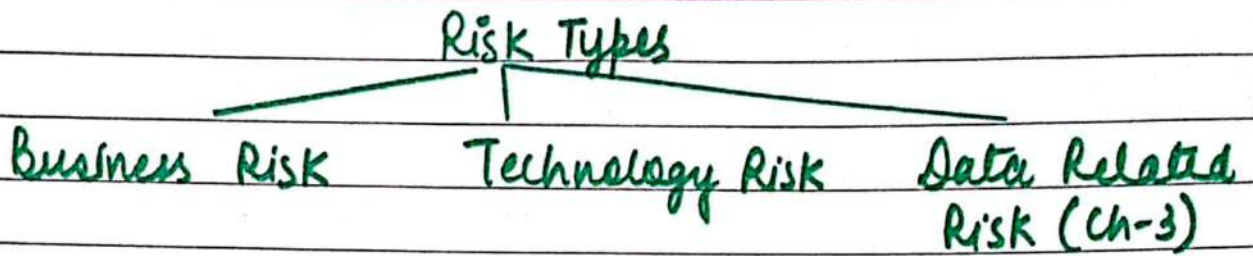 Risk Types
Business Risk Technology Risk Data Related
Risk (Ch-3)